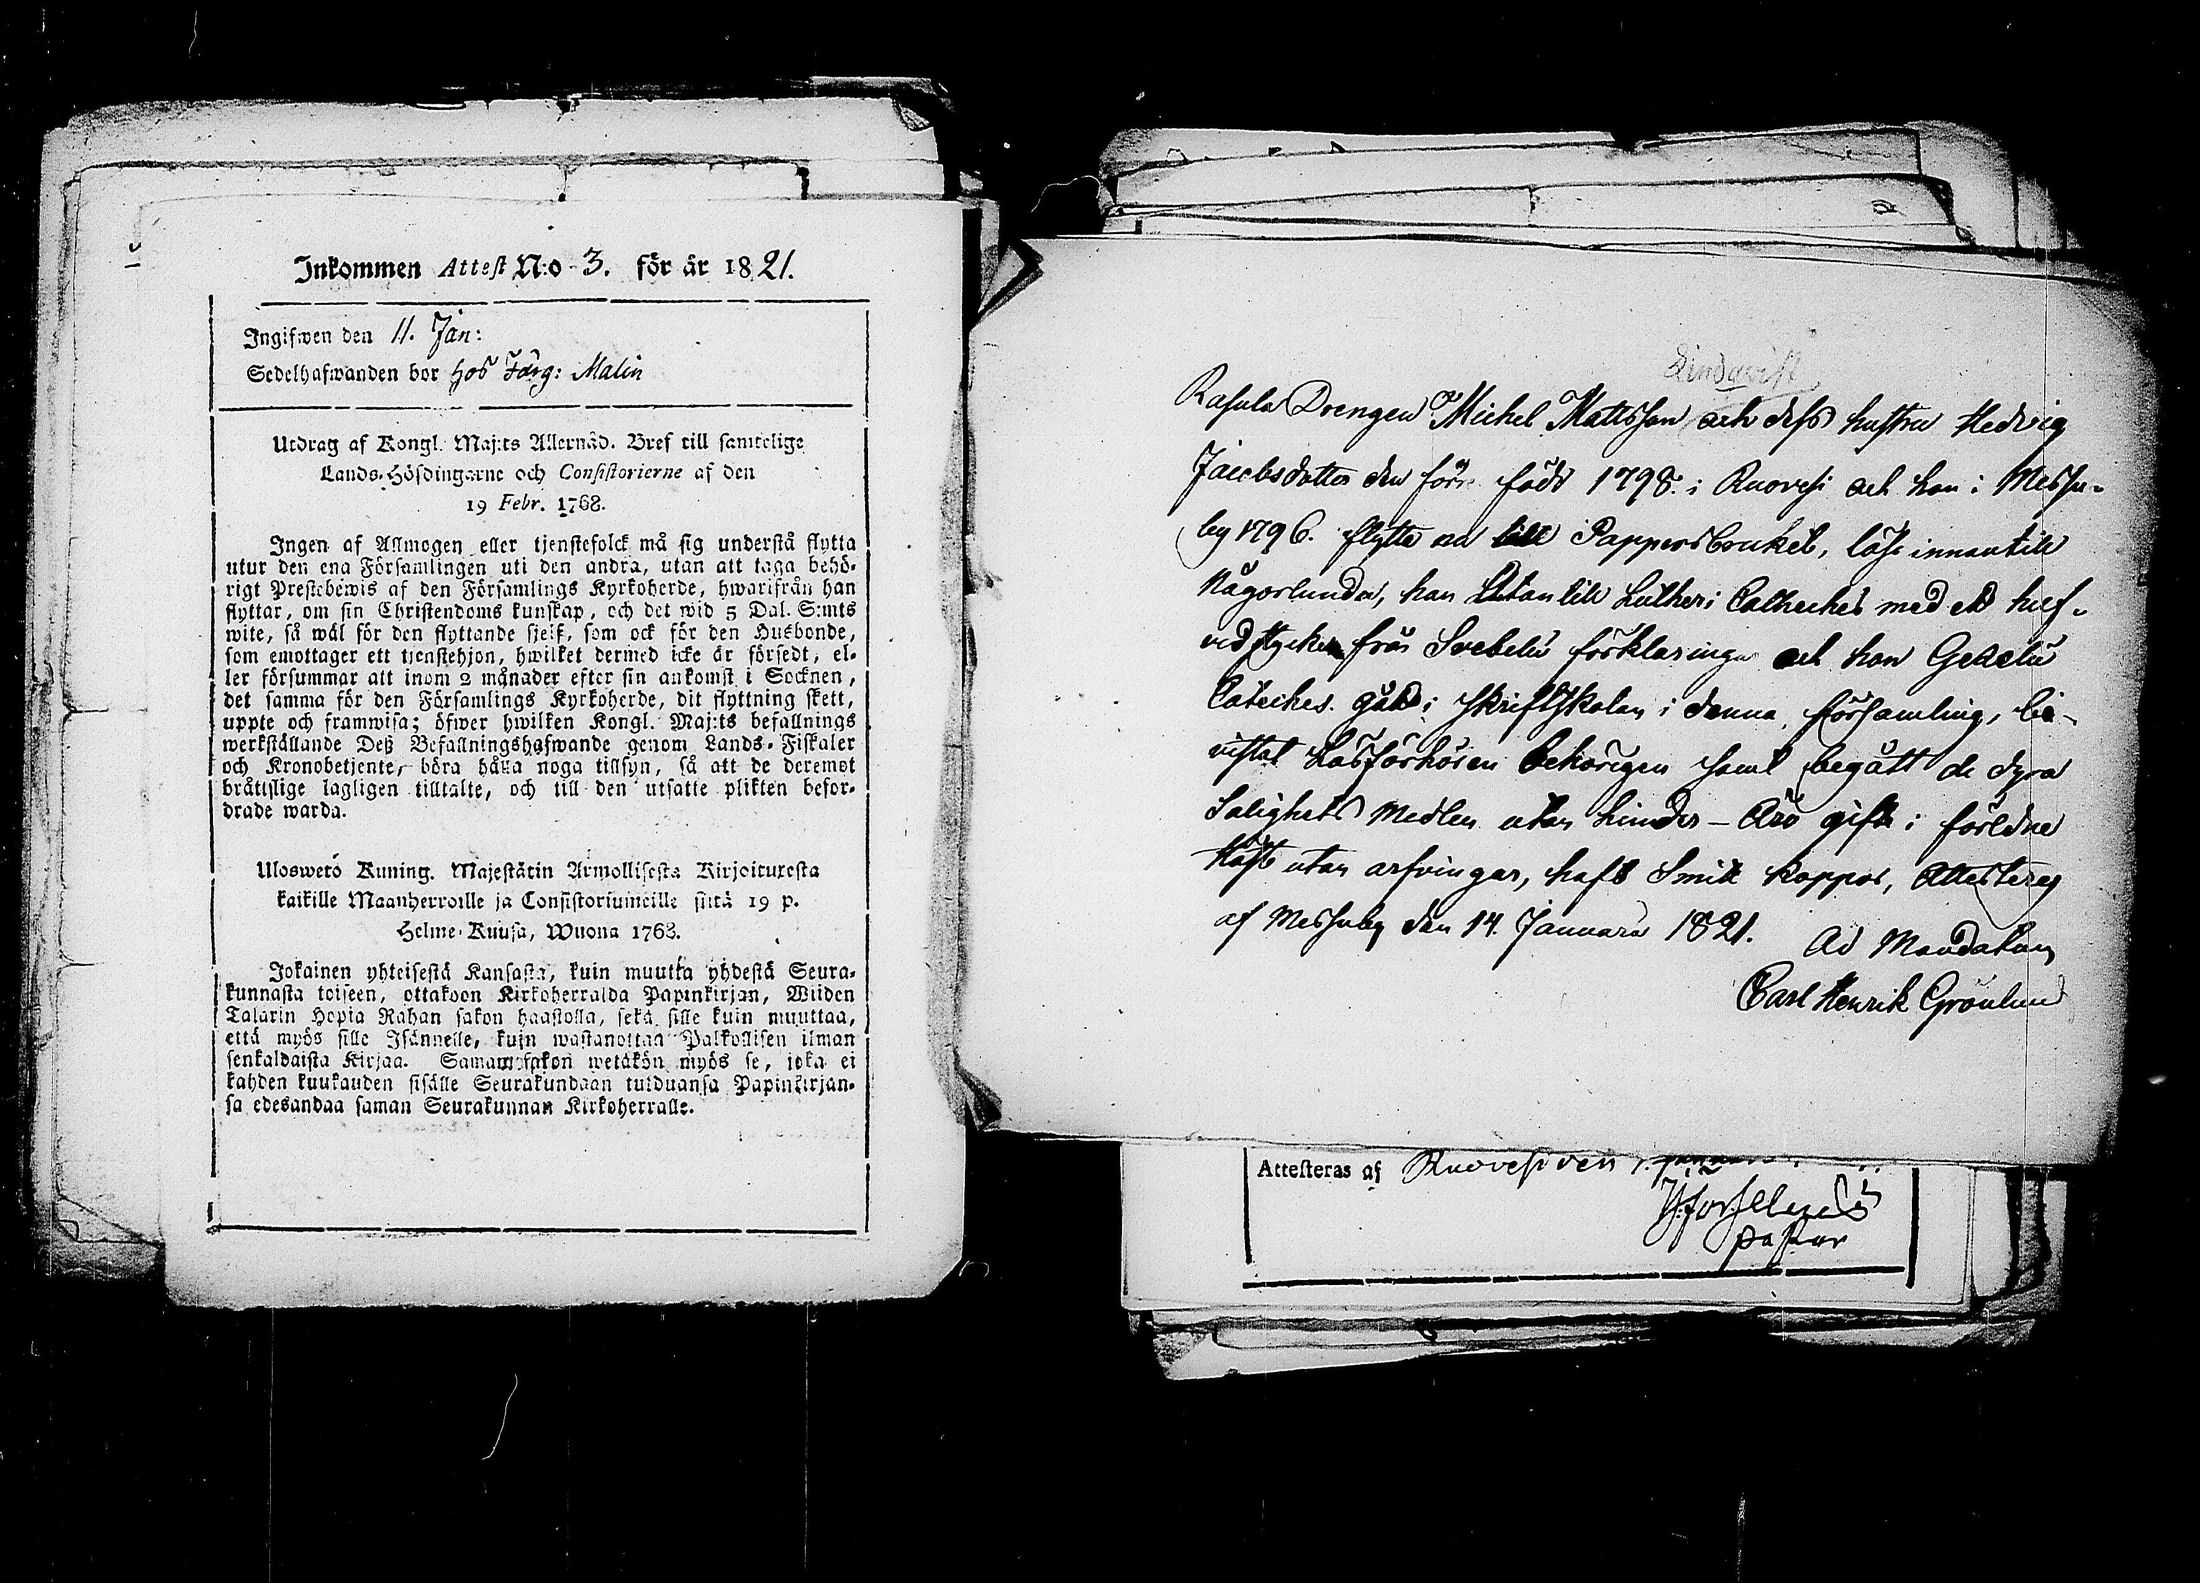 Inkommen Attest N:o 3. för år 1821.
Ingifwen den 11. Jan:
Sedelhafwanden bor hos Färg: Malin
Utdrag af Kongl. Maj:ts Allernåd. Bref till samtelige
Lands-Höfdingarne och Consistorierne af den
19 Febr. 1768.
Ingen af Allmogen eller tjenstefolck må sig understå flytta
utur den ena Församlingen uti den andra, utan att taga behö-
rigt Prestebewis af den Församlings Kyrkoherde, hwarifrån han
flyttar, om sin Christendoms kunskap, och det wid 5 Dal. S:mts
wite, så wäl för den flyttande sjelf, som ock för den Husbonde,
som emottager ett tjenstehjon, hwilket dermed icke är försedt, el-
ler försummar att inom 2 månader efter sin ankomst i Socknen,
det samma för den Församlings Kyrkoherde, dit flyttning skett,
uppte och framwisa; öfwer hwilken Kongl. Maj:ts befallnings
werkställande Deß Befallningshafwande genom Lands-Fiskaler
och Kronobetjente, böra hålla noga tillsyn, så att de deremot
bråttslige lagligen tilltalte, och till den utsatte plikten befor-
drade warda.
Uloswetö Kuning. Majestätin Armollisesta Kirjoituxesta
kaikille Maanherroille ja Consistoriumeille siitä 19 p.
Helme-Kuusa, Wuona 1768.
Jokainen yhteisestä Kansasta, kuin muutta yhdestä Seura-
kunnasta toiseen, ottakoon Kirkoherralda Papinkirjan, Wiiden
Talarin Hopia Rahan sakon haastolla, sekä sille kuin muuttaa,
että myös sille Isännelle, kuin wastanottaa Palkollisen ilman
senkaldaista Kirjaa. Saman sakon wetäkön myös se, joka ei
kahden kuukauden sisälle Seurakundaan tulduansa Papinkirjan-
sa edesandaa saman Seurakunnan Kirkoherralle.
Lindqvist
Drengen Michel Mattsson och dess hustru Hedvig
Jacobsdotter den förr född 1798. i Ruovesi och hon i Messu-
by 1796. flytta nu till Pappersbruket, läse innantill
någorlunda, han utantill Lutheri Catheches med ett huf-
vudstycke från Svebelii förklaring och hon Gezelii
Catechés. gått i skriftskolan i denna församling, bi-
vistat Läsförhören behörigen samt begått de dyra
Salighets Medlen utan hinder – Äro gifte i förledne
Höst utan arfvingar, haft Smitt koppor, Attesteras
af Messuby den 14. Januarii 1821.
Ad Mandatum
Carl Henrik Grönlund
Attesteras af Ruovesi den
pastor